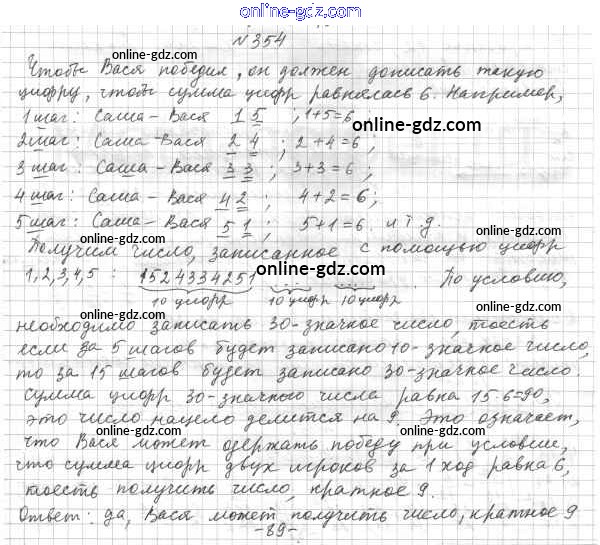 online-gdz.com
№354
online-gdz.com
Чтобы Вася победил, он должен дописать такую
цифру, чтобы сумма цифр равнялась 6. Например,
1 шаг: Саша – Вася 1 5 ; 1+5=6
online-gdz.com
2 шаг: Саша – Вася 2 4 ; 2+4=6 ;
online-gdz.com online-gdz.com
3 шаг: Саша – Вася 3 3 ; 3+3=6 ;
4 шаг: Саша – Вася 4 2 ; 4+2=6;
online-gdz.com
5 шаг: Саша – Вася 5 1 ; 5+1=6. и т.д.
online-gdz.com online-gdz.com
Получим число, записанное с помощью цифр
1,2,3,4,5 : 1524334251 ... ... . По условию,
online-gdz.com
10 цифр 10 цифр 10 цифр
online-gdz.com
необходимо записать 30-значное число, тоесть
если за 5 шагов будет записано 10-значное число,
online-gdz.com
то за 15 шагов будет записано 30-значное число.
online-gdz.com
Сумма цифр 30-значного числа равна 15·6=90,
online-gdz.com
это число нацело делится на 9. Это означает,
online-gdz.com
что Вася может одержать победу при условии,
что сумма цифр двух игроков за 1 ход равна 6,
online-gdz.com
тоесть получить число, кратное 9.
online-gdz.com
Ответ: да, Вася может получить число, кратное 9
-89-
online-gdz.com